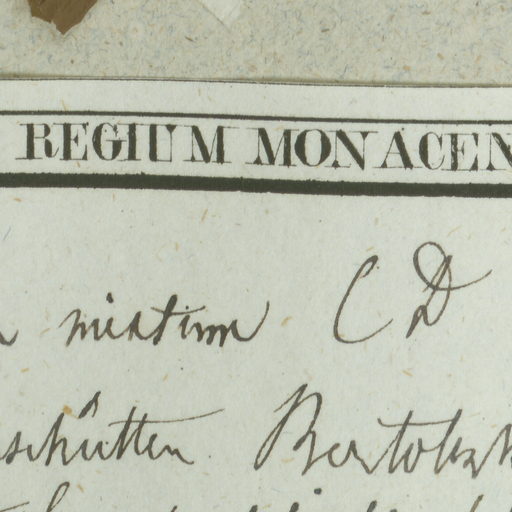 REGIUM MONACEN
mixtum C D
schütten. Bertolzh